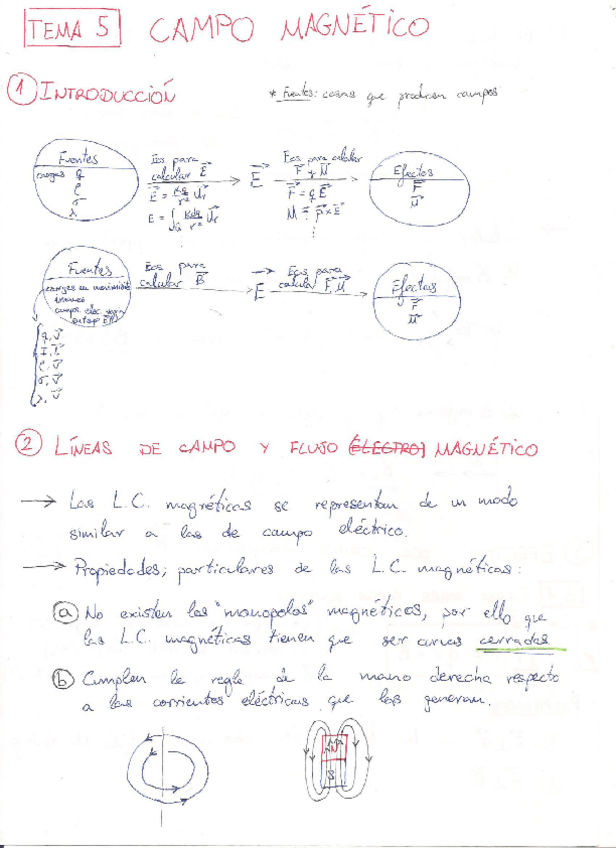 TEMA 5 CAMPO MAGNÉTICO
① INTRODUCCIÓN
* Fuentes: cosas que producen campos
Fuentes
cargas q
ρ
σ
λ
Ecs para
calcular E⃗
E⃗ = Kq/r² u⃗r
E = ∫ Kdq/r² u⃗r
E⃗
Ecs para calcular
F⃗ y M⃗
F⃗ = q E⃗
M⃗ = p⃗ x E⃗
Efectos
F⃗
M⃗
Fuentes
cargas en movimiento
campos elec.
q, v⃗
ρ, v⃗
σ, v⃗
λ, v⃗
Ecs para
calcular B⃗
E⃗
Ecs para
calcular F⃗, M⃗
Efectos
F⃗
M⃗
② LÍNEAS DE CAMPO Y FLUJO (ELECTRO) MAGNÉTICO
→ Las L.C. magnéticas se representan de un modo
similar a las de campo eléctrico.
→ Propiedades; particulares de las L.C. magnéticas:
ⓐ No existen los "monopolos" magnéticos, por ello que
las L.C. magnéticas tienen que ser curvas cerradas
ⓑ Cumplen la regla de la mano derecha respecto
a las corrientes eléctricas que las generan.
N
S